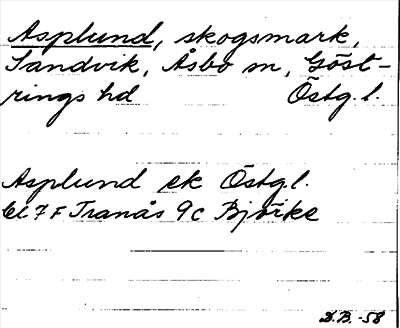 Asplund, skogsmark,
Sandvik, Åsbo sn, Göst-
rings hd Östg. l.
Asplund ek Östg. l.
bl 7 F Tranås 9c Bjørke
D.B. -58